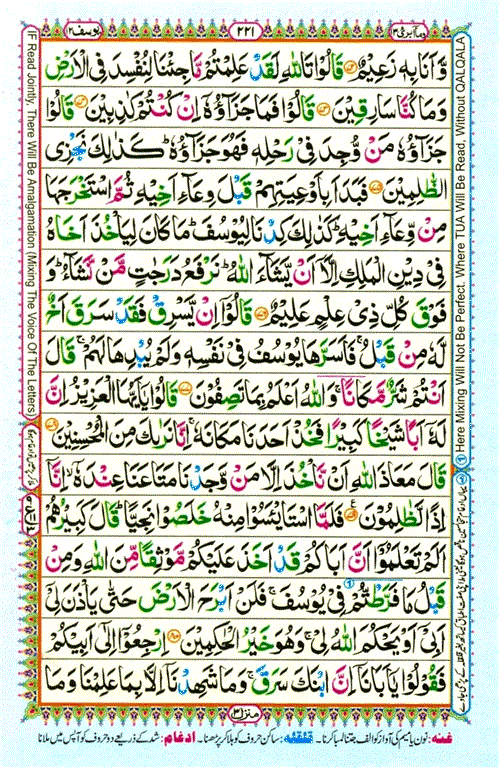 وما ابرئ ١٣ ٢٢١ يوسف ١٢
وَّاَنَا بِهٖ زَعِيْمٌ ﴿٧٢﴾ قَالُوْا تَاللّٰهِ لَقَدْ عَلِمْتُمْ مَّا جِئْنَا لِنُفْسِدَ فِى الْاَرْضِ
وَمَا كُنَّا سَارِقِيْنَ ﴿٧٣﴾ قَالُوْا فَمَا جَزَآؤُهٗۤ اِنْ كُنْتُمْ كٰذِبِيْنَ ﴿٧٤﴾ قَالُوْا
جَزَآؤُهٗ مَنْ وُّجِدَ فِىْ رَحْلِهٖ فَهُوَ جَزَآؤُهٗ ؕ كَذٰلِكَ نَجْزِى
الظّٰلِمِيْنَ ﴿٧٥﴾ فَبَدَاَ بِاَوْعِيَتِهِمْ قَبْلَ وِعَآءِ اَخِيْهِ ثُمَّ اسْتَخْرَجَهَا
مِنْ وِّعَآءِ اَخِيْهِ ؕ كَذٰلِكَ كِدْنَا لِيُوْسُفَ ؕ مَا كَانَ لِيَاْخُذَ اَخَاهُ
فِىْ دِيْنِ الْمَلِكِ اِلَّاۤ اَنْ يَّشَآءَ اللّٰهُ ؕ نَرْفَعُ دَرَجٰتٍ مَّنْ نَّشَآءُ ؕ وَ
فَوْقَ كُلِّ ذِىْ عِلْمٍ عَلِيْمٌ ﴿٧٦﴾ قَالُوْۤا اِنْ يَّسْرِقْ فَقَدْ سَرَقَ اَخٌ
لَّهٗ مِنْ قَبْلُ ۚ فَاَسَرَّهَا يُوْسُفُ فِىْ نَفْسِهٖ وَلَمْ يُبْدِهَا لَهُمْ ۚ قَالَ
اَنْتُمْ شَرٌّ مَّكَانًا ۚ وَاللّٰهُ اَعْلَمُ بِمَا تَصِفُوْنَ ﴿٧٧﴾ قَالُوْا يٰۤاَيُّهَا الْعَزِيْزُ اِنَّ
لَهٗۤ اَبًا شَيْخًا كَبِيْرًا فَخُذْ اَحَدَنَا مَكَانَهٗ ۚ اِنَّا نَرٰىكَ مِنَ الْمُحْسِنِيْنَ ﴿٧٨﴾
قَالَ مَعَاذَ اللّٰهِ اَنْ نَّاْخُذَ اِلَّا مَنْ وَّجَدْنَا مَتَاعَنَا عِنْدَهٗۤ ۙ اِنَّاۤ
اِذًا لَّظٰلِمُوْنَ ﴿٧٩﴾ فَلَمَّا اسْتَيْـَٔسُوْا مِنْهُ خَلَصُوْا نَجِيًّا ؕ قَالَ كَبِيْرُهُمْ
اَلَمْ تَعْلَمُوْۤا اَنَّ اَبَاكُمْ قَدْ اَخَذَ عَلَيْكُمْ مَّوْثِقًا مِّنَ اللّٰهِ وَمِنْ
قَبْلُ مَا فَرَّطْتُّمْ فِىْ يُوْسُفَ ۚ فَلَنْ اَبْرَحَ الْاَرْضَ حَتّٰى يَاْذَنَ لِىْۤ
اَبِىْۤ اَوْ يَحْكُمَ اللّٰهُ لِىْ ۚ وَهُوَ خَيْرُ الْحٰكِمِيْنَ ﴿٨٠﴾ اِرْجِعُوْۤا اِلٰٓى اَبِيْكُمْ
فَقُوْلُوْا يٰۤاَبَانَاۤ اِنَّ ابْنَكَ سَرَقَ ۚ وَمَا شَهِدْنَاۤ اِلَّا بِمَا عَلِمْنَا وَمَا
منزل ٣
غنہ: نون یا میم کی آواز کو الف جتنا لمبا کرنا۔ قلقلہ: ساکن حروف کو ہلا کر پڑھنا۔ ادغام: شد کے ذریعے دو حروف کو آپس میں ملانا
① Here Mixing Will Not Be Perfect. Where TUA Will Be Read, Without QALQALA
IF Read Jointly, There Will Be Amalgamation (Mixing The Voice Of The Letters)